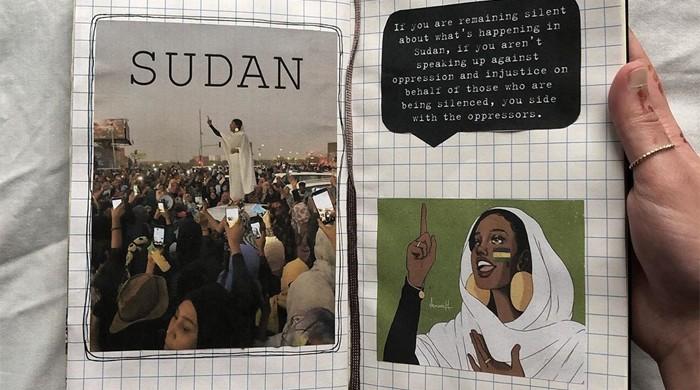 SUDAN
If you are remaining silent
about what's happening in
Sudan, if you aren't
speaking up against
oppression and injustice on
behalf of those who are
being silenced, you side
with the oppressors.